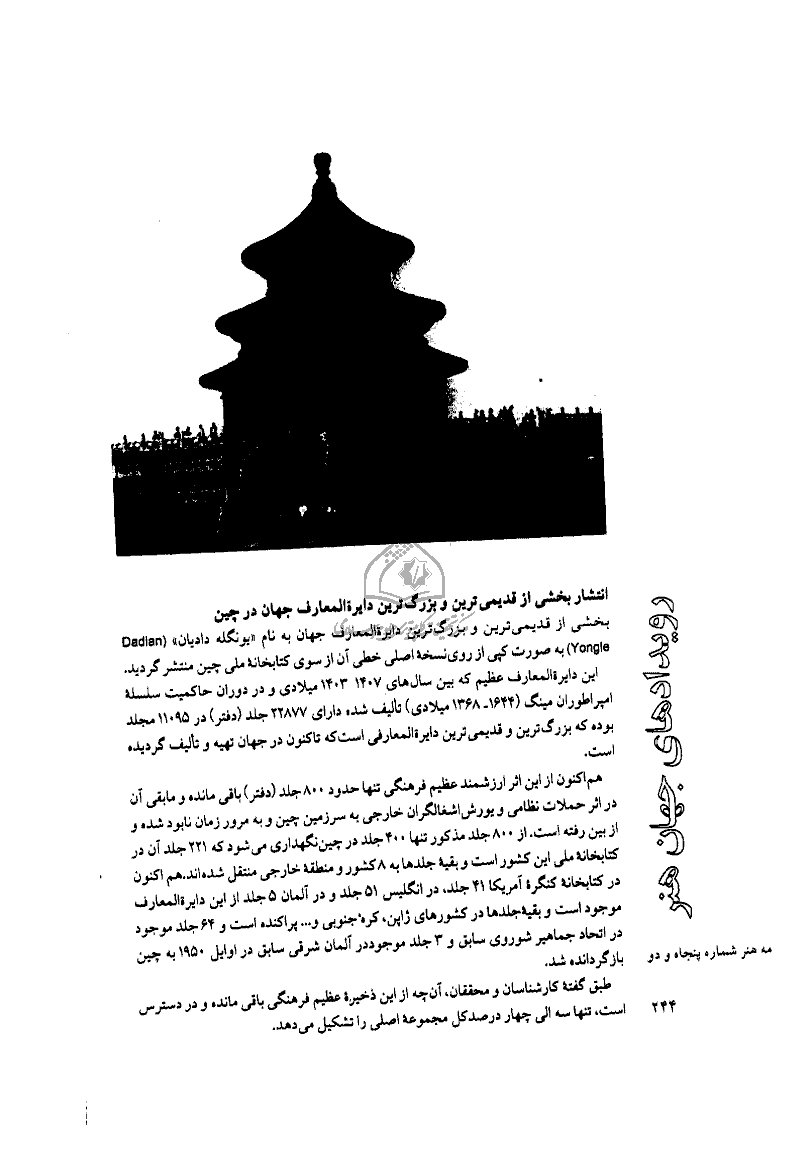 انتشار بخشی از قدیمی‌ترین و بزرگ‌ترین دایرةالمعارف جهان در چین
بخشی از قدیمی‌ترین و بزرگ‌ترین دایرةالمعارف جهان به نام «یونگله دادیان» (Dadian
Yongle) به صورت کپی از روی‌نسخهٔ اصلی خطی آن از سوی کتابخانهٔ ملی چین منتشر گردید.
این دایرةالمعارف عظیم که بین سال‌های ۱۴۰۷ ـ ۱۴۰۳ میلادی و در دوران حاکمیت سلسلهٔ
امپراطوران مینگ (۱۶۴۴ـ ۱۳۶۸ میلادی) تألیف شده دارای ۲۲۸۷۷ جلد (دفتر) در ۱۱۰۹۵ مجلد
بوده که بزرگ‌ترین و قدیمی‌ترین دایرةالمعارفی است‌که تاکنون در جهان تهیه و تألیف گردیده
است.
هم‌اکنون از این اثر ارزشمند عظیم فرهنگی تنها حدود ۸۰۰ جلد (دفتر) باقی مانده و مابقی آن
در اثر حملات نظامی و یورش‌اشغالگران خارجی به سرزمین چین و به مرور زمان نابود شده و
از بین رفته است. از ۸۰۰ جلد مذکور تنها ۴۰۰ جلد در چین‌نگهداری می‌شود که ۲۲۱ جلد آن در
کتابخانهٔ ملی این کشور است و بقیهٔ جلدها به ۸ کشور و منطقهٔ خارجی منتقل شده‌اند.هم اکنون
در کتابخانهٔ کنگرهٔ آمریکا ۴۱ جلد، در انگلیس ۵۱ جلد و در آلمان ۵ جلد از این دایرةالمعارف
موجود است و بقیهٔ‌جلدها در کشورهای ژاپن، کره‌جنوبی و... پراکنده است و ۶۴ جلد موجود
در اتحاد جماهیر شوروی سابق و ۳ جلد موجوددر آلمان شرقی سابق در اوایل ۱۹۵۰ به چین
بازگردانده شد.
طبق گفتهٔ کارشناسان و محققان، آن‌چه از این ذخیرهٔ عظیم فرهنگی باقی مانده و در دسترس
است، تنها سه الی چهار درصدکل مجموعهٔ اصلی را تشکیل می‌دهد.
رویدادهای جهان هنر
مه هنر شماره پنجاه و دو
۲۴۴